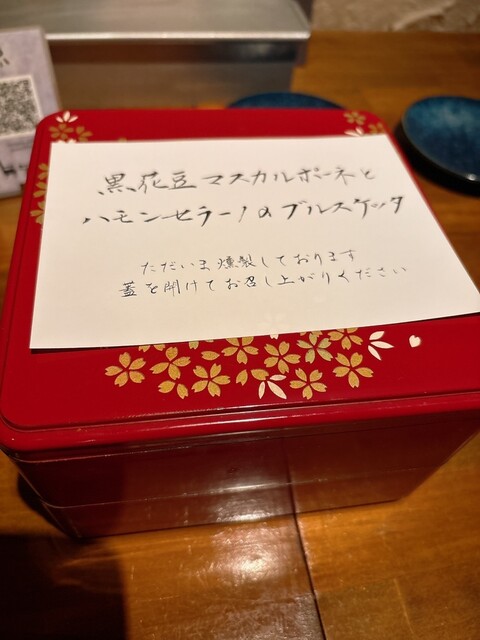 黒花豆マスカルポーネと
ハモンセラーノのブルスケッタ
ただいま燻製しております
蓋を開けてお召し上がりください